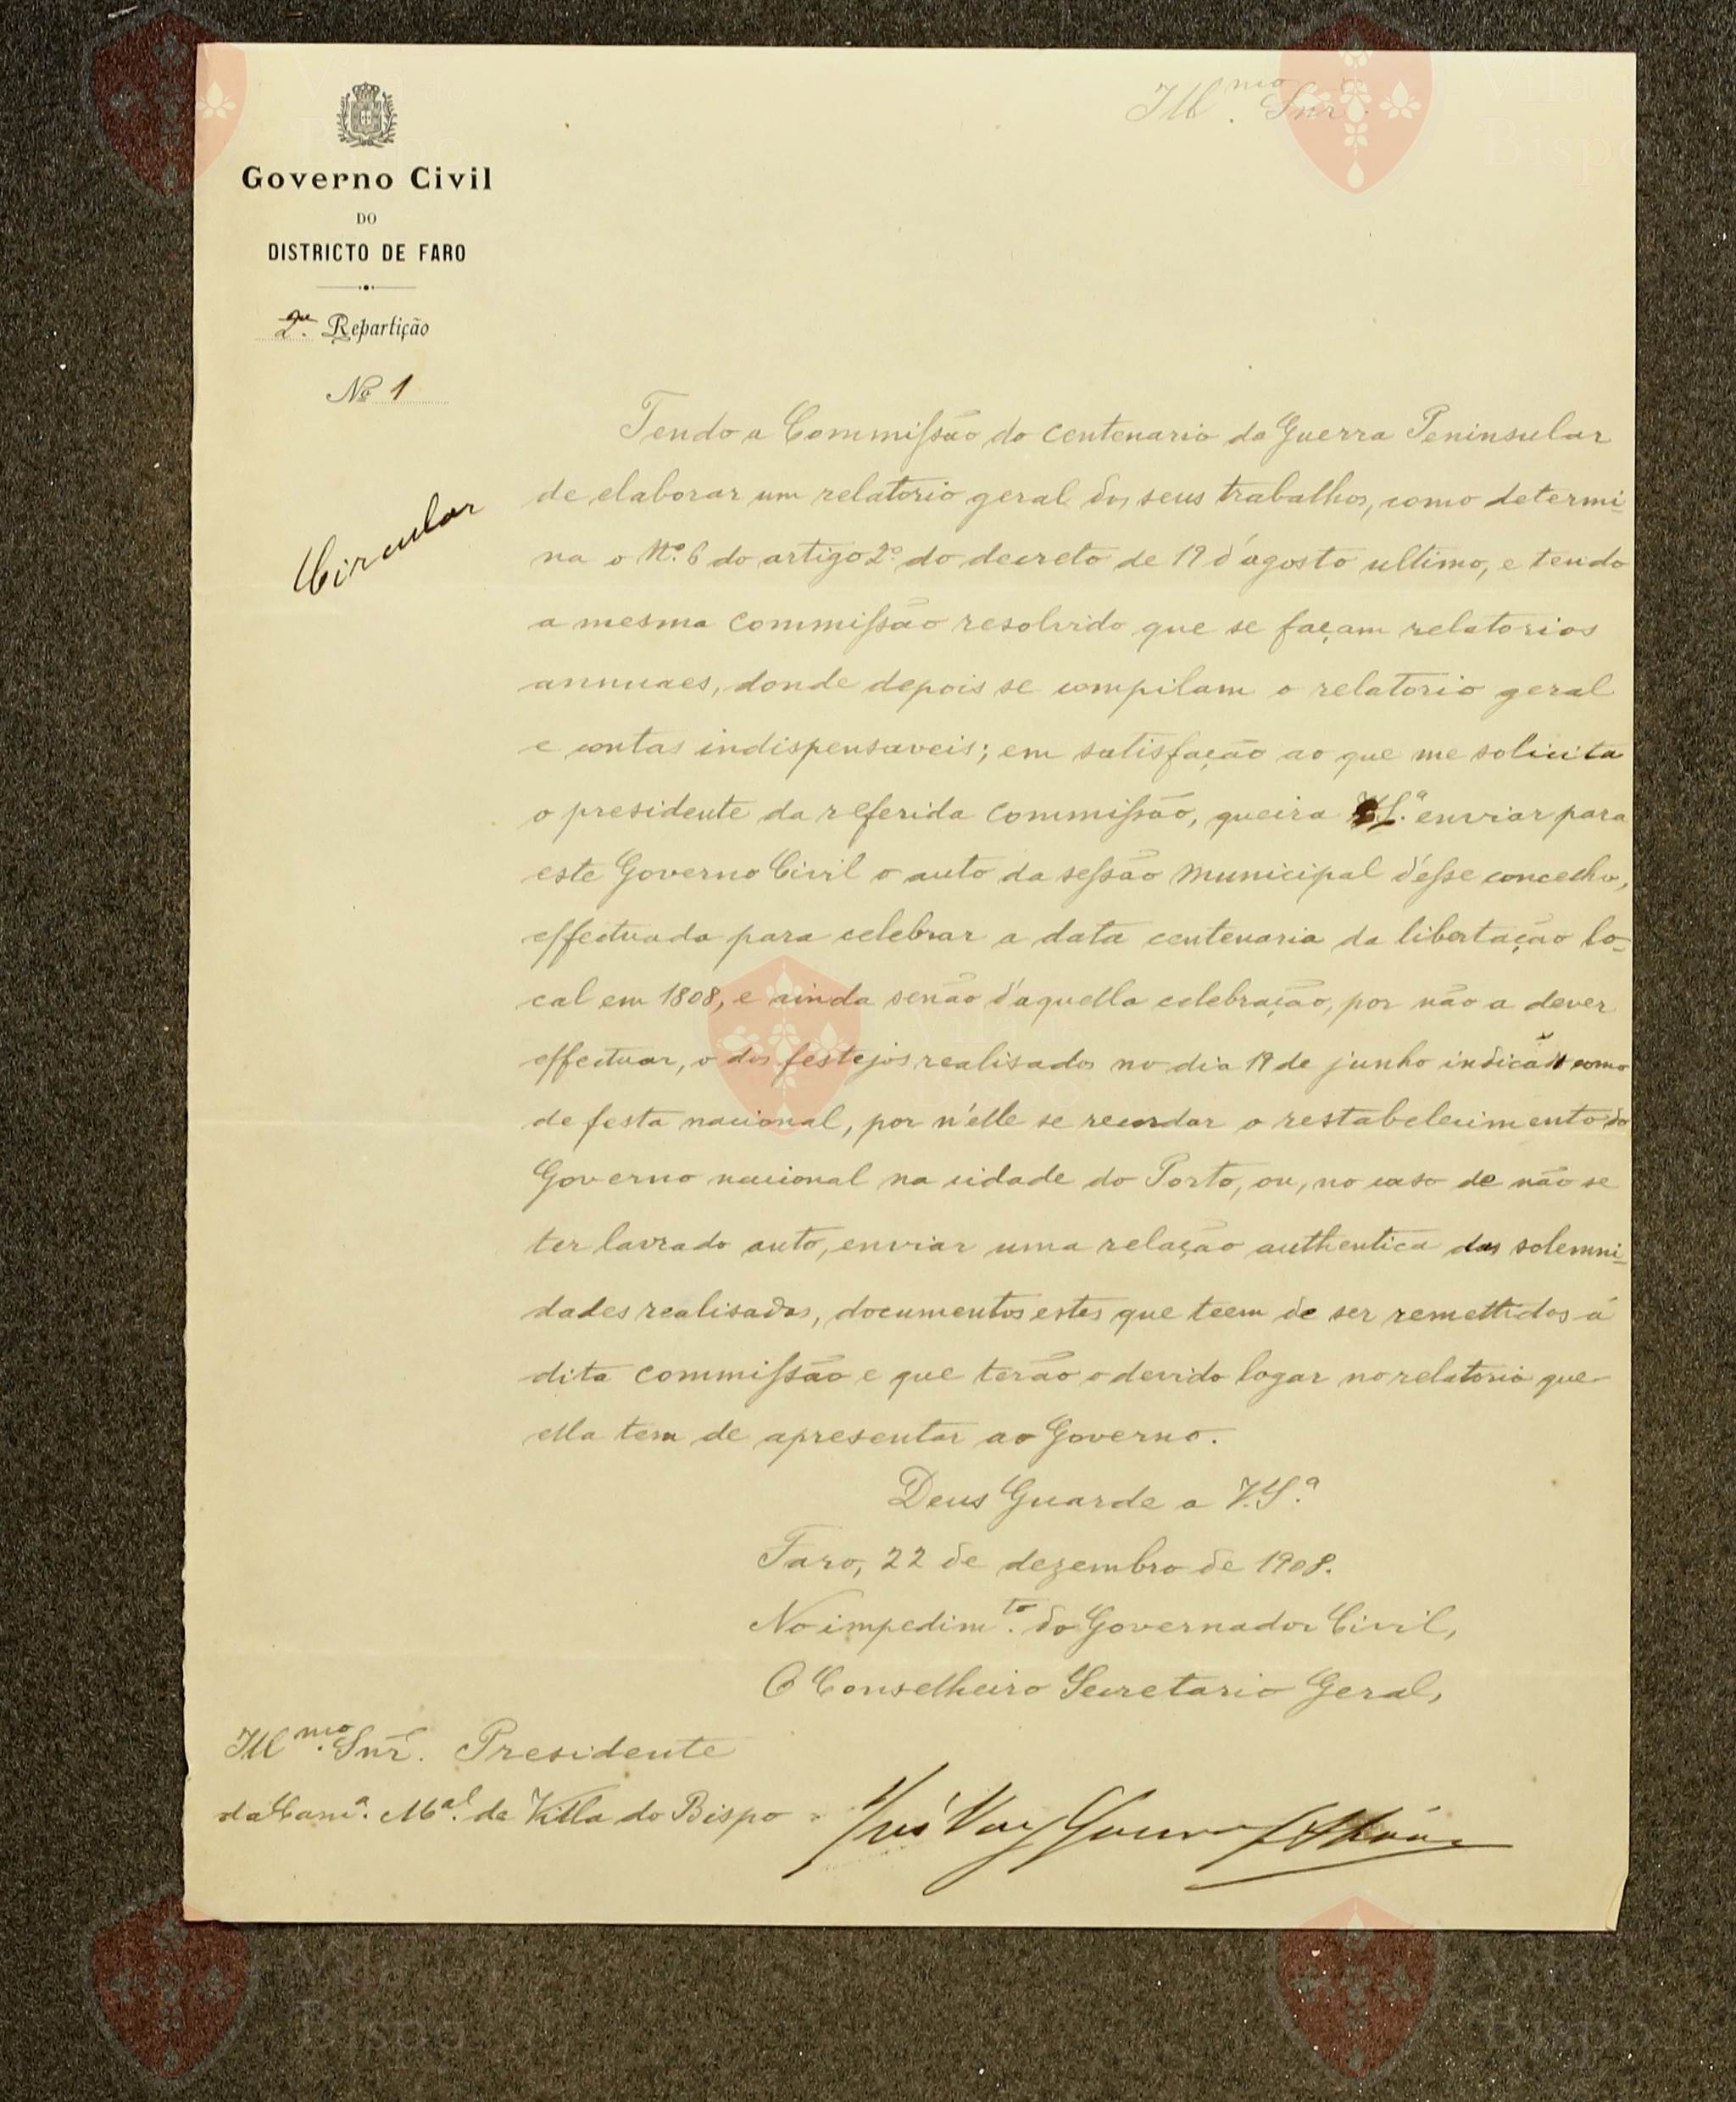 Ill.mo Snr.
Governo Civil
DO
DISTRICTO DE FARO
2.a Repartição
No 1
Circular
Tendo a Commissão do centenario da Guerra Peninsular
de elaborar um relatorio geral dos seus trabalhos, como determi-
na o No. 6 do artigo 2.o do decreto de 19 d'agosto ultimo, e tendo
a mesma commissão resolvido que se façam relatorios
annuaes, donde depois se compilam o relatorio geral
e contas indispensaveis; em satisfação ao que me solicita
o presidente da referida commissão, queira V.S.a enviar para
este Governo Civil o auto da sessão municipal d'esse concelho,
effectuada para celebrar a data centenaria da libertação lo-
cal em 1808, e ainda senão d'aquella celebração, por não a dever
effectuar, o dos festejos realisados no dia 19 de junho indicado como
de festa nacional, por n'elle se recordar o restabelecimento do
Governo nacional na cidade do Porto, ou, no caso de não se
ter lavrado auto, enviar uma relação authentica das solemni-
dades realisadas, documentos estes que teem de ser remettidos á
dita commissão e que terão o devido logar no relatorio que
ella tem de apresentar ao Governo.
Deus Guarde a V.S.a
Faro, 22 de dezembro de 1908.
No impedim.to do Governador Civil,
O Conselheiro Secretario Geral,
Ill.mo Snr. Presidente
da Cam.a M.al de Villa do Bispo